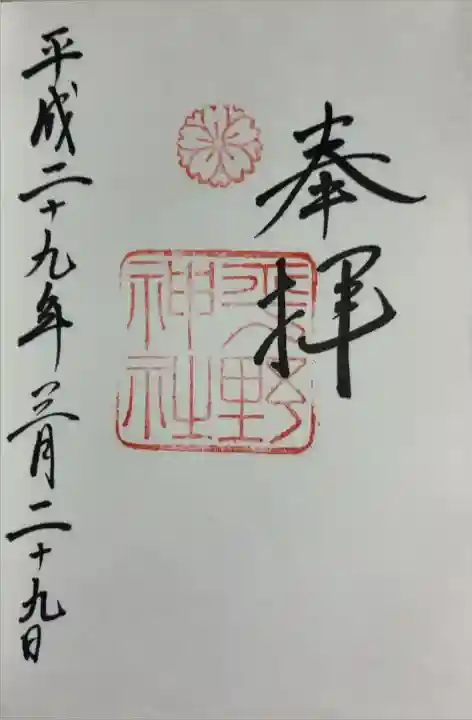 奉拝
平野
神社
平成二十九年三月二十九日